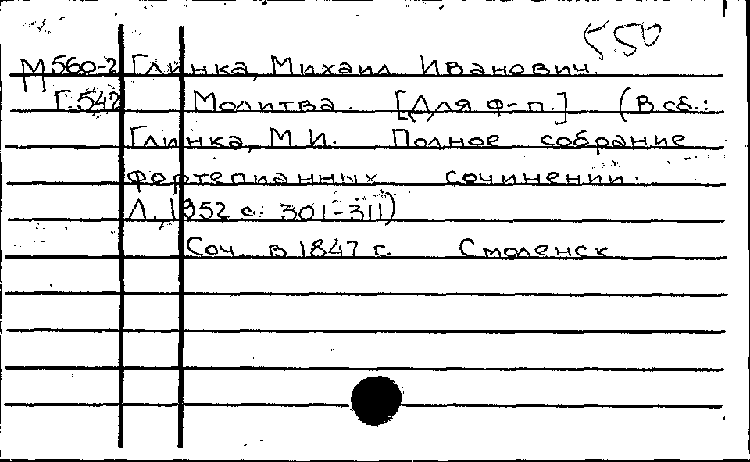 550
М560-2 Глинка, Михаил Иванович.
Г.542 Молитва. [Для ф-п.] (В сб.:
Глинка, М.И. Полное собрание
фортепианных сочинений.
Л. 1952 с. 301-311)
Соч. в 1847 г. Смоленск